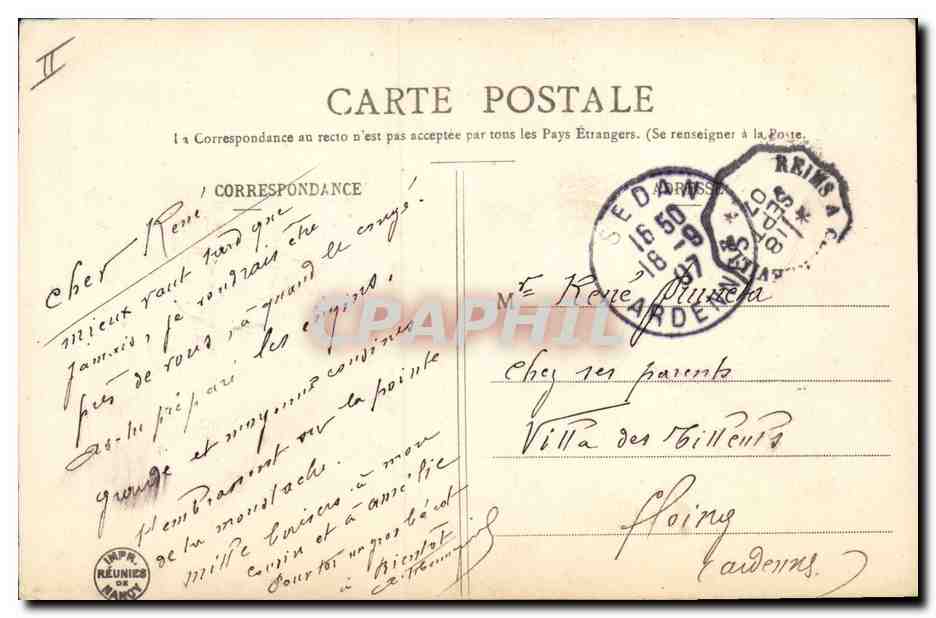 II
CARTE POSTALE
La Correspondance au recto n'est pas acceptée par tous les Pays Étrangers. (Se renseigner à la Poste.
CORRESPONDANCE
ADRESSE
Cher René
mieux vaut tard que
jamais, je voudrais être
près de vous, à quand le congé!
As-tu préparé les engins!
grande et moyenne cousines
t'embrassent sur la pointe
de la moustache.
mille baisers à mon
cousin et à
Pour toi un gros bécot
à Bientôt
SEDAN
16 50
18 -9
07
ARDENNES
REIMS A
18 SEPT 07
Mr René
Chez ses parents
Villa des Tilleuls
Floing
Ardennes
IMPR. RÉUNIES DE NANCY
CPAPHIL